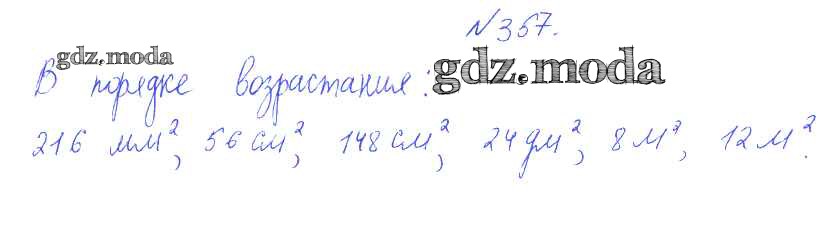 №357.
gdz.moda
В порядке возрастания: gdz.moda
216 мм², 56 см², 148 см², 24 дм², 8 м², 12 м².